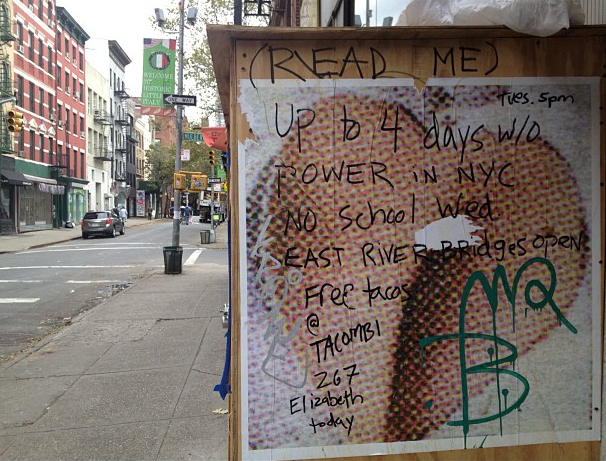 (READ ME)
Tues. 5pm
Up to 4 days w/o
POWER in NYC
NO School Wed.
EAST RIVER Bridges OPEN
Free tacos
@
TACOMBI
267
Elizabeth
today
MQ
B
WELCOME
TO
HISTORIC
LITTLE
ITALY
ONE WAY